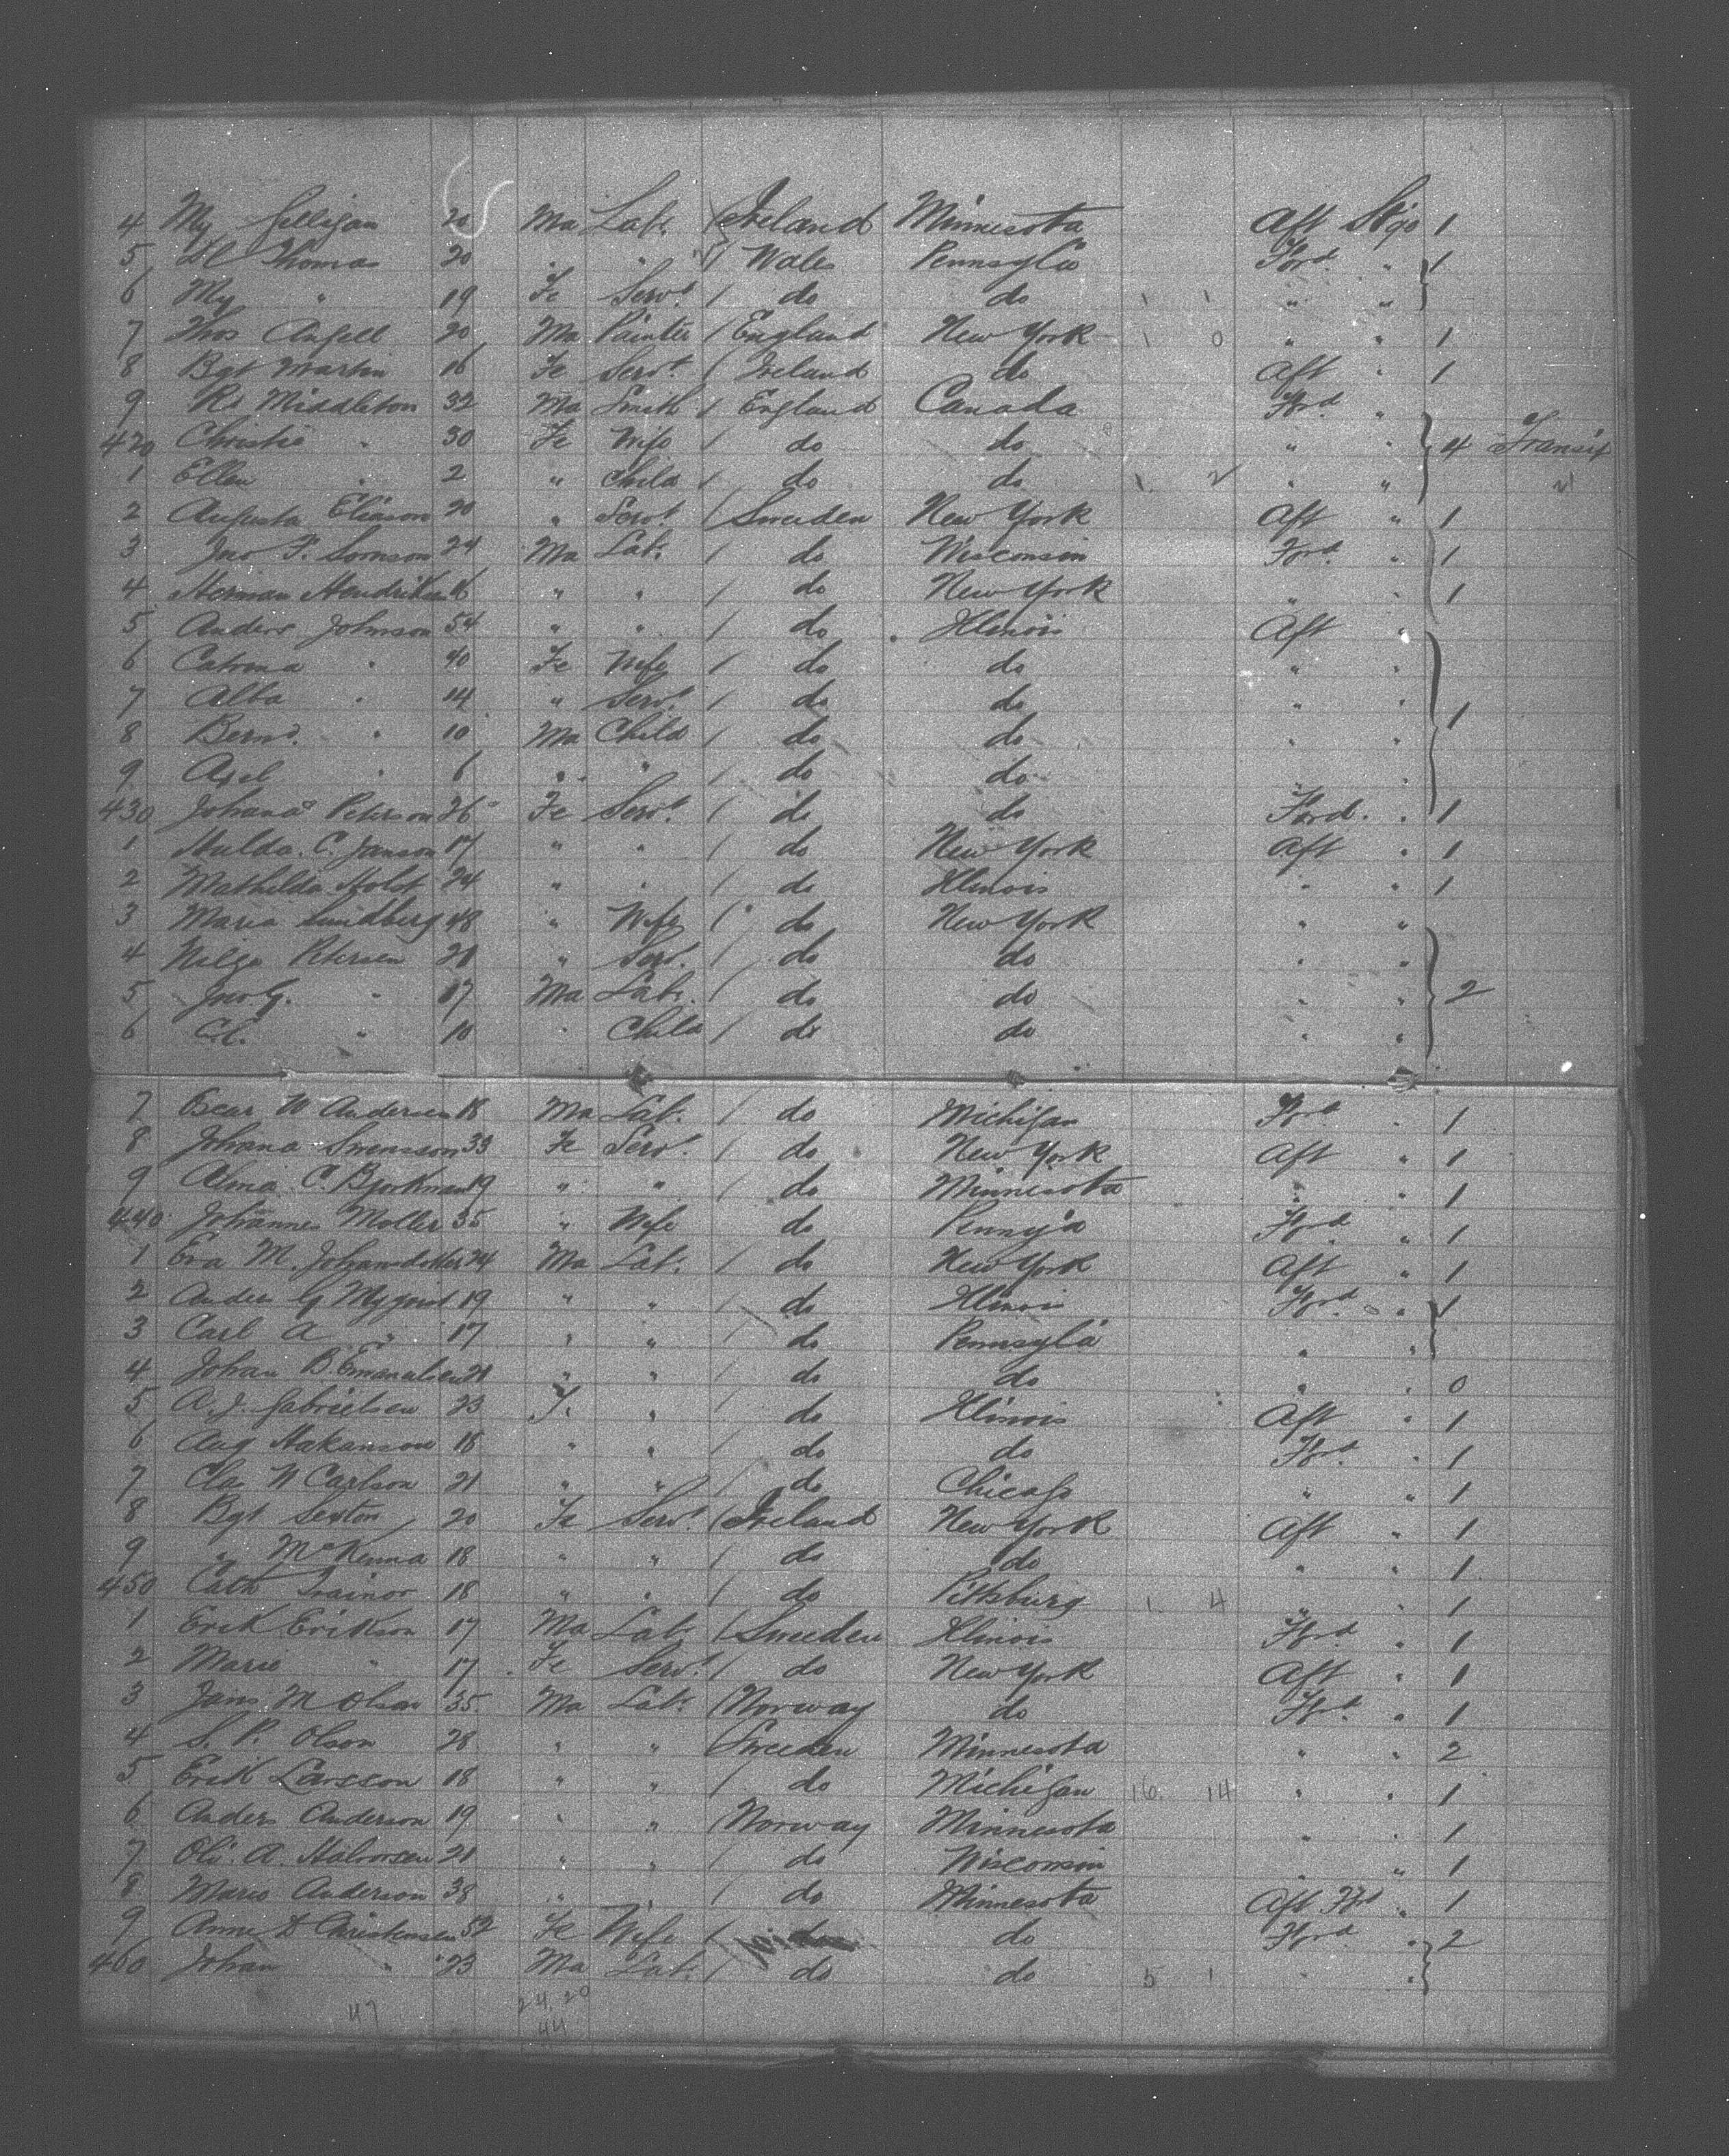 4 My Gilligan 20 Ma Lab. Ireland Minnesota Aft Stge 1
5 Dl Thomas 20 " " Wales Pennsyla Ford " 1
6 My " 19 Fe Servt do do 1 1 " "
7 Thos Angell 20 Ma Painter England New York 1 0 " " 1
8 Bgt Martin 16 Fe Servt Ireland do Aft " 1
9 Rd Middleton 32 Ma Smith England Canada Ford "
420 Christie " 30 Fe Wife do do " " 4 Transit
1 Ellen " 2 " Child do do 1 2 " "
2 Augusta Eliason 20 " Servt Sweeden New York Aft " 1
3 Jno F. 24 Ma Lab. do Wisconsin Ford " 1
4 Herman Hendriksen 16 " " do New York " " 1
5 Anders Johnson 54 " " do Illinois Aft "
6 Catrina " 40 Fe Wife do do " "
7 Alba " 14 " Servt do do " " 1
8 Bernd. " 10 Ma Child do do " "
9 Axel " 6 " " do do "
430 Johana Peterson 26 Fe Servt do do Ford. " 1
1 Hulda. C. Janson 17 " " do New York Aft " 1
2 Mathilda Holst 24 " " do Illinois " " 1
3 Maria Lundberg 48 " Wife do New York " "
4 Petersen 21 " Servt. do do " "
5 Jno G. " 17 Ma Lab. do do " " 2
6 " 10 " Child do do " "
7 Oscar W Andersen 18 Ma Lab. do Michigan Ford " 1
8 Johana Swensson 33 Fe Servt do New York Aft " 1
9 Alma C. Bjorkman 19 " " do Minnesota " " 1
440 Johannes Moller 35 " Wife do Pennya Ford " 1
1 Eva M. Johansdotter 24 Ma Lab. do New York Aft " 1
2 Anders G 19 " " do Illinois Ford " 1
3 Carl A " 17 " " do Pennsyla " "
4 Johan B Emanuelsen 21 " " do do " " 0
5 A. J. Gabrielsen 23 F. " do Illinois Aft " 1
6 Aug Hakanson 18 " " do do Ford " 1
7 W Carlson 21 " " do Chicago " " 1
8 Bgt Sexton 20 Fe Servt Ireland New York Aft " 1
9 " McKenna 18 " " do do " " 1
450 Cath Trainor 18 " " do Pittsburg 1 4 " " 1
1 Erik Erikson 17 Ma Lab. Sweeden Illinois Ford " 1
2 Marie " 17 Fe Servt do New York Aft " 1
3 Jans M Olsen 35 Ma Lab. Norway do Ford " 1
4 S. P. Olson 28 " " Sweeden Minnesota " " 2
5 Erik Larsson 18 " " do Michigan 16 14 " " 1
6 Anders Anderson 19 " " Norway Minnesota " " 1
7 Ole A. Halvorsen 21 " " do Wisconsin " " 1
8 Mario Anderson 38 " " do Minnesota Aft Ford " 1
9 Anne D Christensen 52 Fe Wife do do Ford " 2
460 Johan " 23 Ma Lab. do do 5 1 " "
47 24 20
44